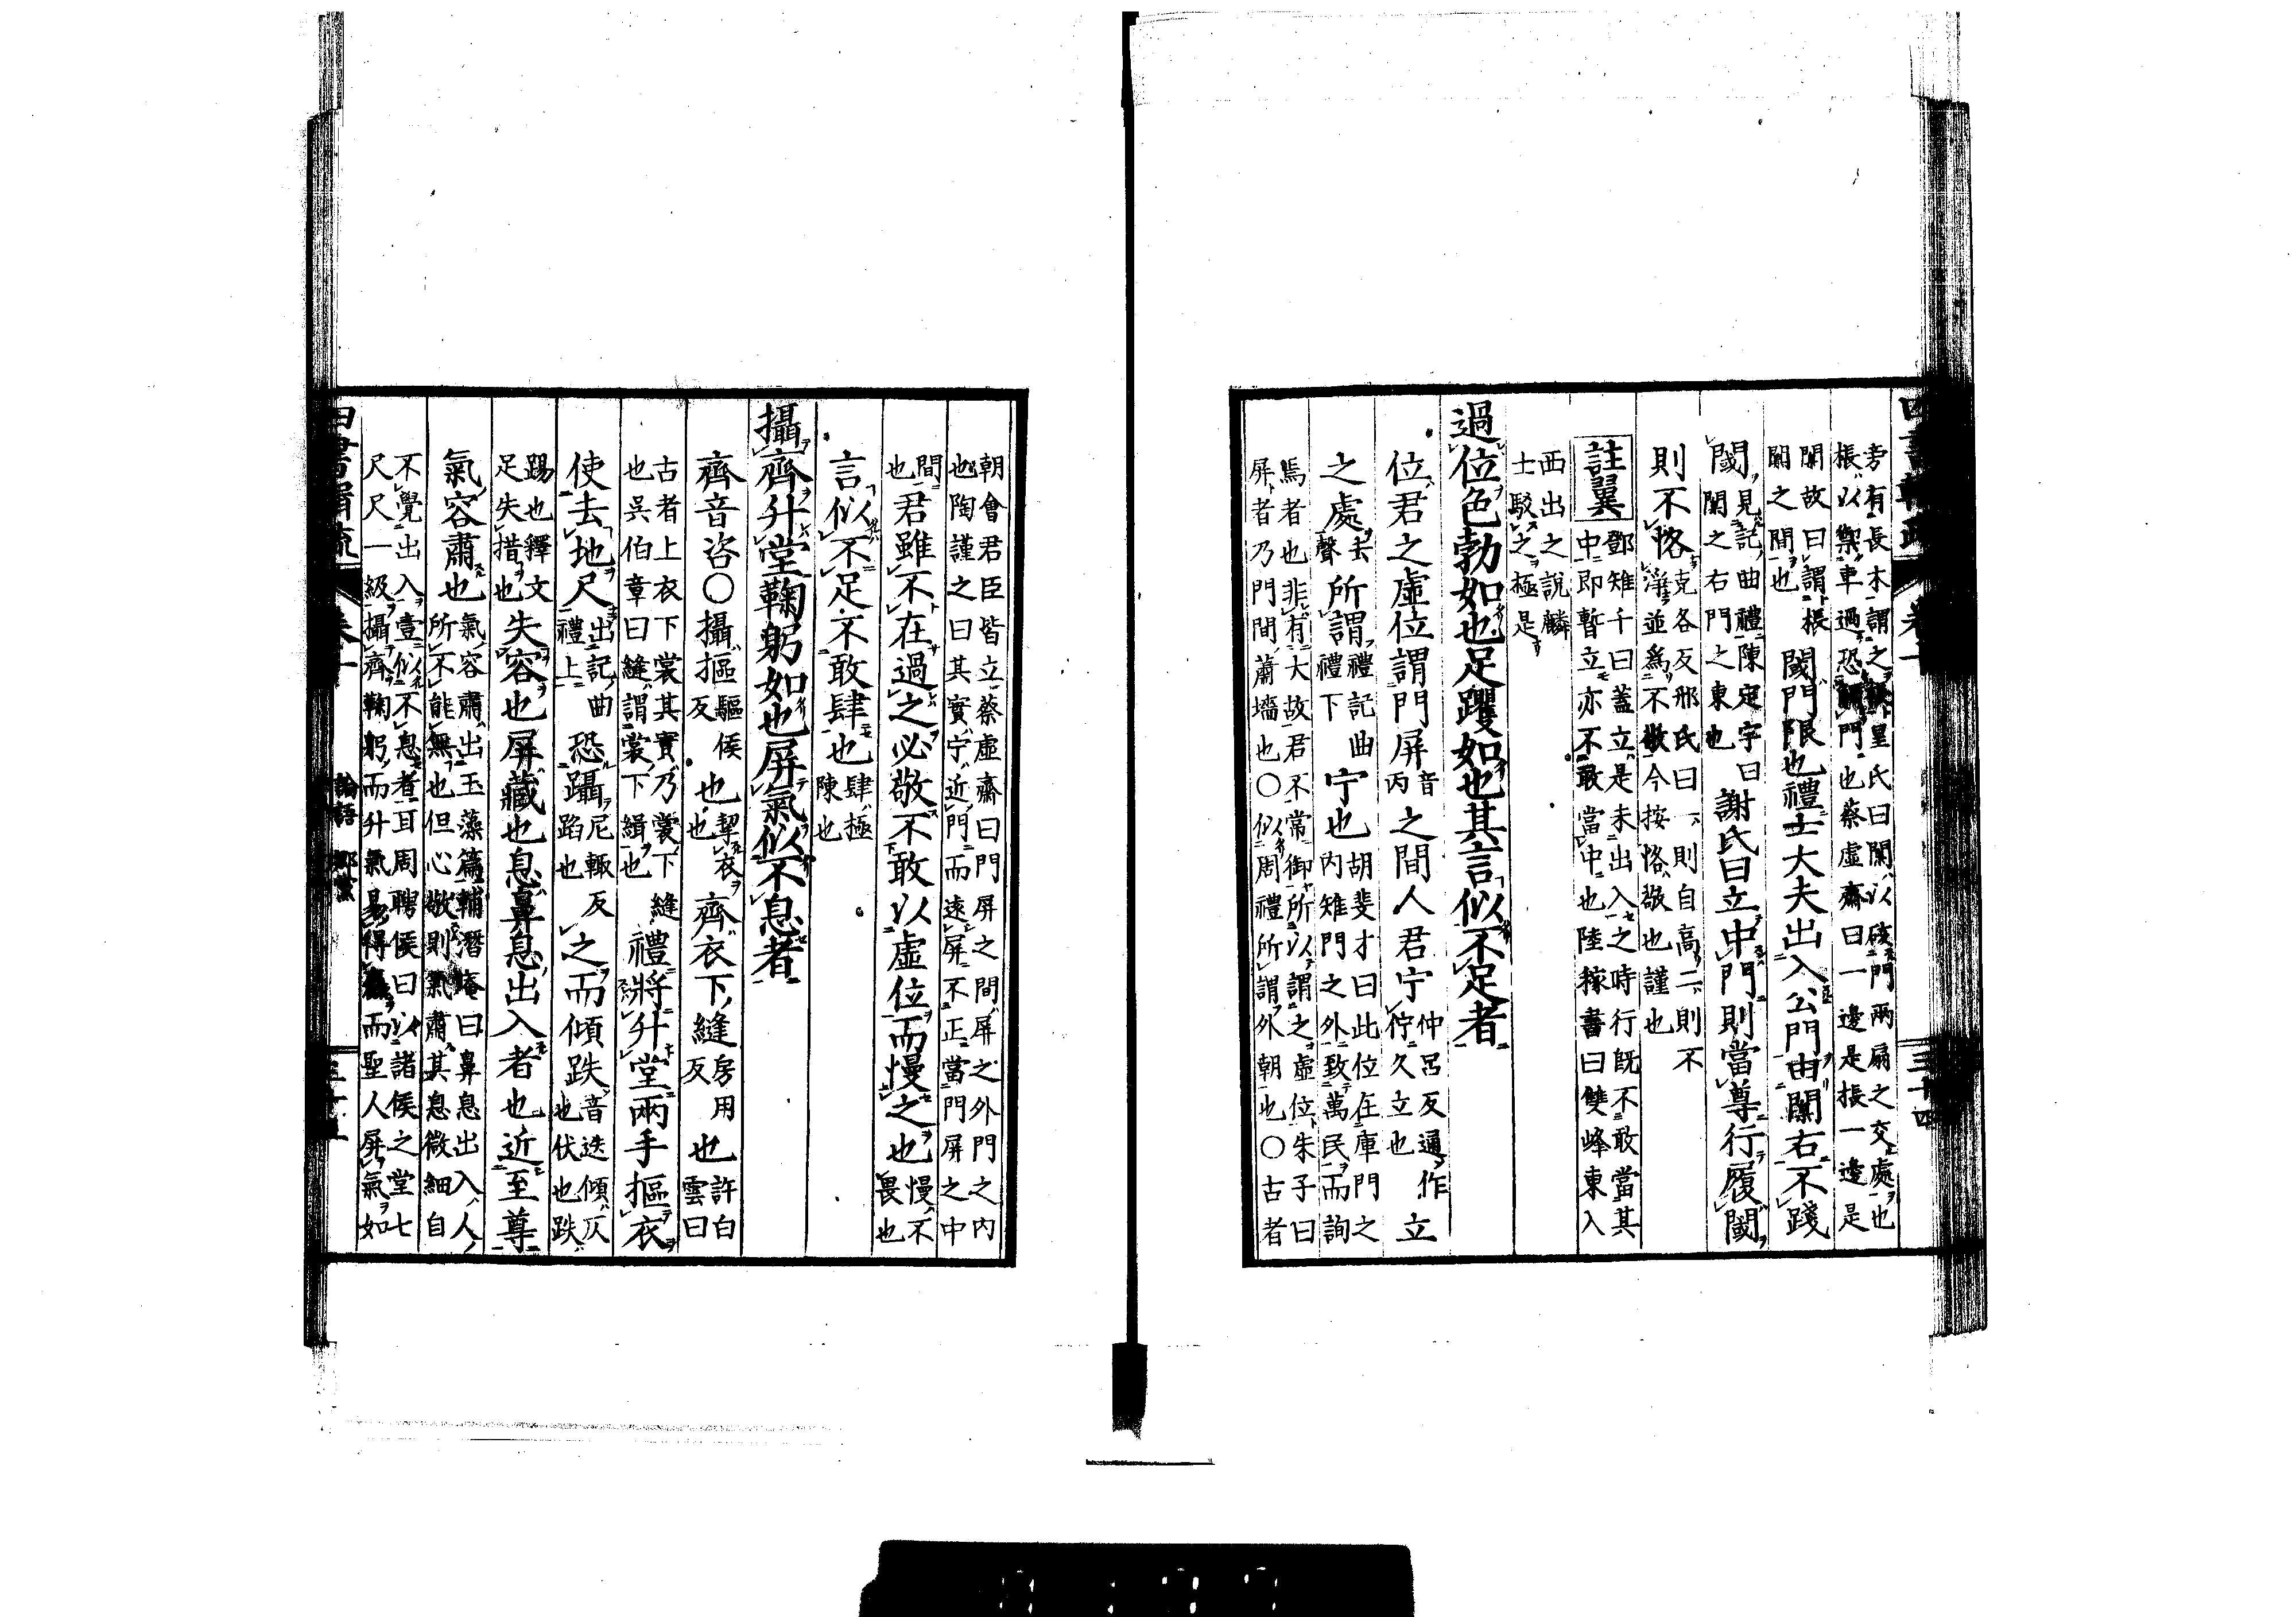 四書輯疏 卷十 三十四
旁有長木謂之棖皇氏曰闑以硋門兩扇之交處也
棖以禦車過恐觸門也蔡虛齋曰一邊是棖一邊是
闑故曰謂棖闑之間也閾門限也禮士大夫出入公門由闑右不踐
閾見記曲禮陳定宇曰闑之右門之東也謝氏曰立中門則當尊行履閾
則不恪克各反邢氏曰一則自高二則不淨並爲不敬今按恪敬也謹也
註翼鄧雉千曰蓋立是未出入之時行既不敢當其中即暫立亦不敢當中也陸稼書曰雙峰東入
西出之說麟士駁之極是
過位色勃如也足躩如也其言似不足者
位君之虛位謂門屏音丙之間人君宁仲呂反通作佇久立也立
之處去聲所謂禮記曲禮下宁也胡斐才曰此位在庫門之內雉門之外致萬民而詢
焉者也非有大故君不常御所以謂之虛位朱子曰
屏者乃門間蕭墻也○似周禮所謂外朝也○古者
朝會君臣皆立蔡虛齋曰門屏之間屏之外門之內
也陶謹之曰其實宁近門而遠屏不正當門屏之中
間也君雖不在過之必敬不敢以虛位而慢之也慢不畏也
言似不足不敢肆也肆極陳也
攝齊升堂鞠躬如也屏氣似不息者
齊音咨○攝摳驅侯反也挈衣也齊衣下縫房用反也許白雲曰
古者上衣下裳其實乃裳下縫也吳伯章曰縫謂裳下緝也禮將升堂兩手摳衣
使去地尺出記曲禮上恐躡尼輒反蹈也之而傾跌音迭傾仄也伏也跌
踢也釋文足失措也失容也屏藏也息鼻息出入者也近至尊
氣容肅也氣容肅出玉藻篇輔潛庵曰鼻息出入人所不能無也但心敬則氣肅其息微細自
不覺出入壹似不息者耳周聘侯曰以諸侯之堂七
尺尺一級攝齊鞠躬而升氣易得而聖人屏氣如
四書輯疏 卷十 論語 鄉黨 三十五